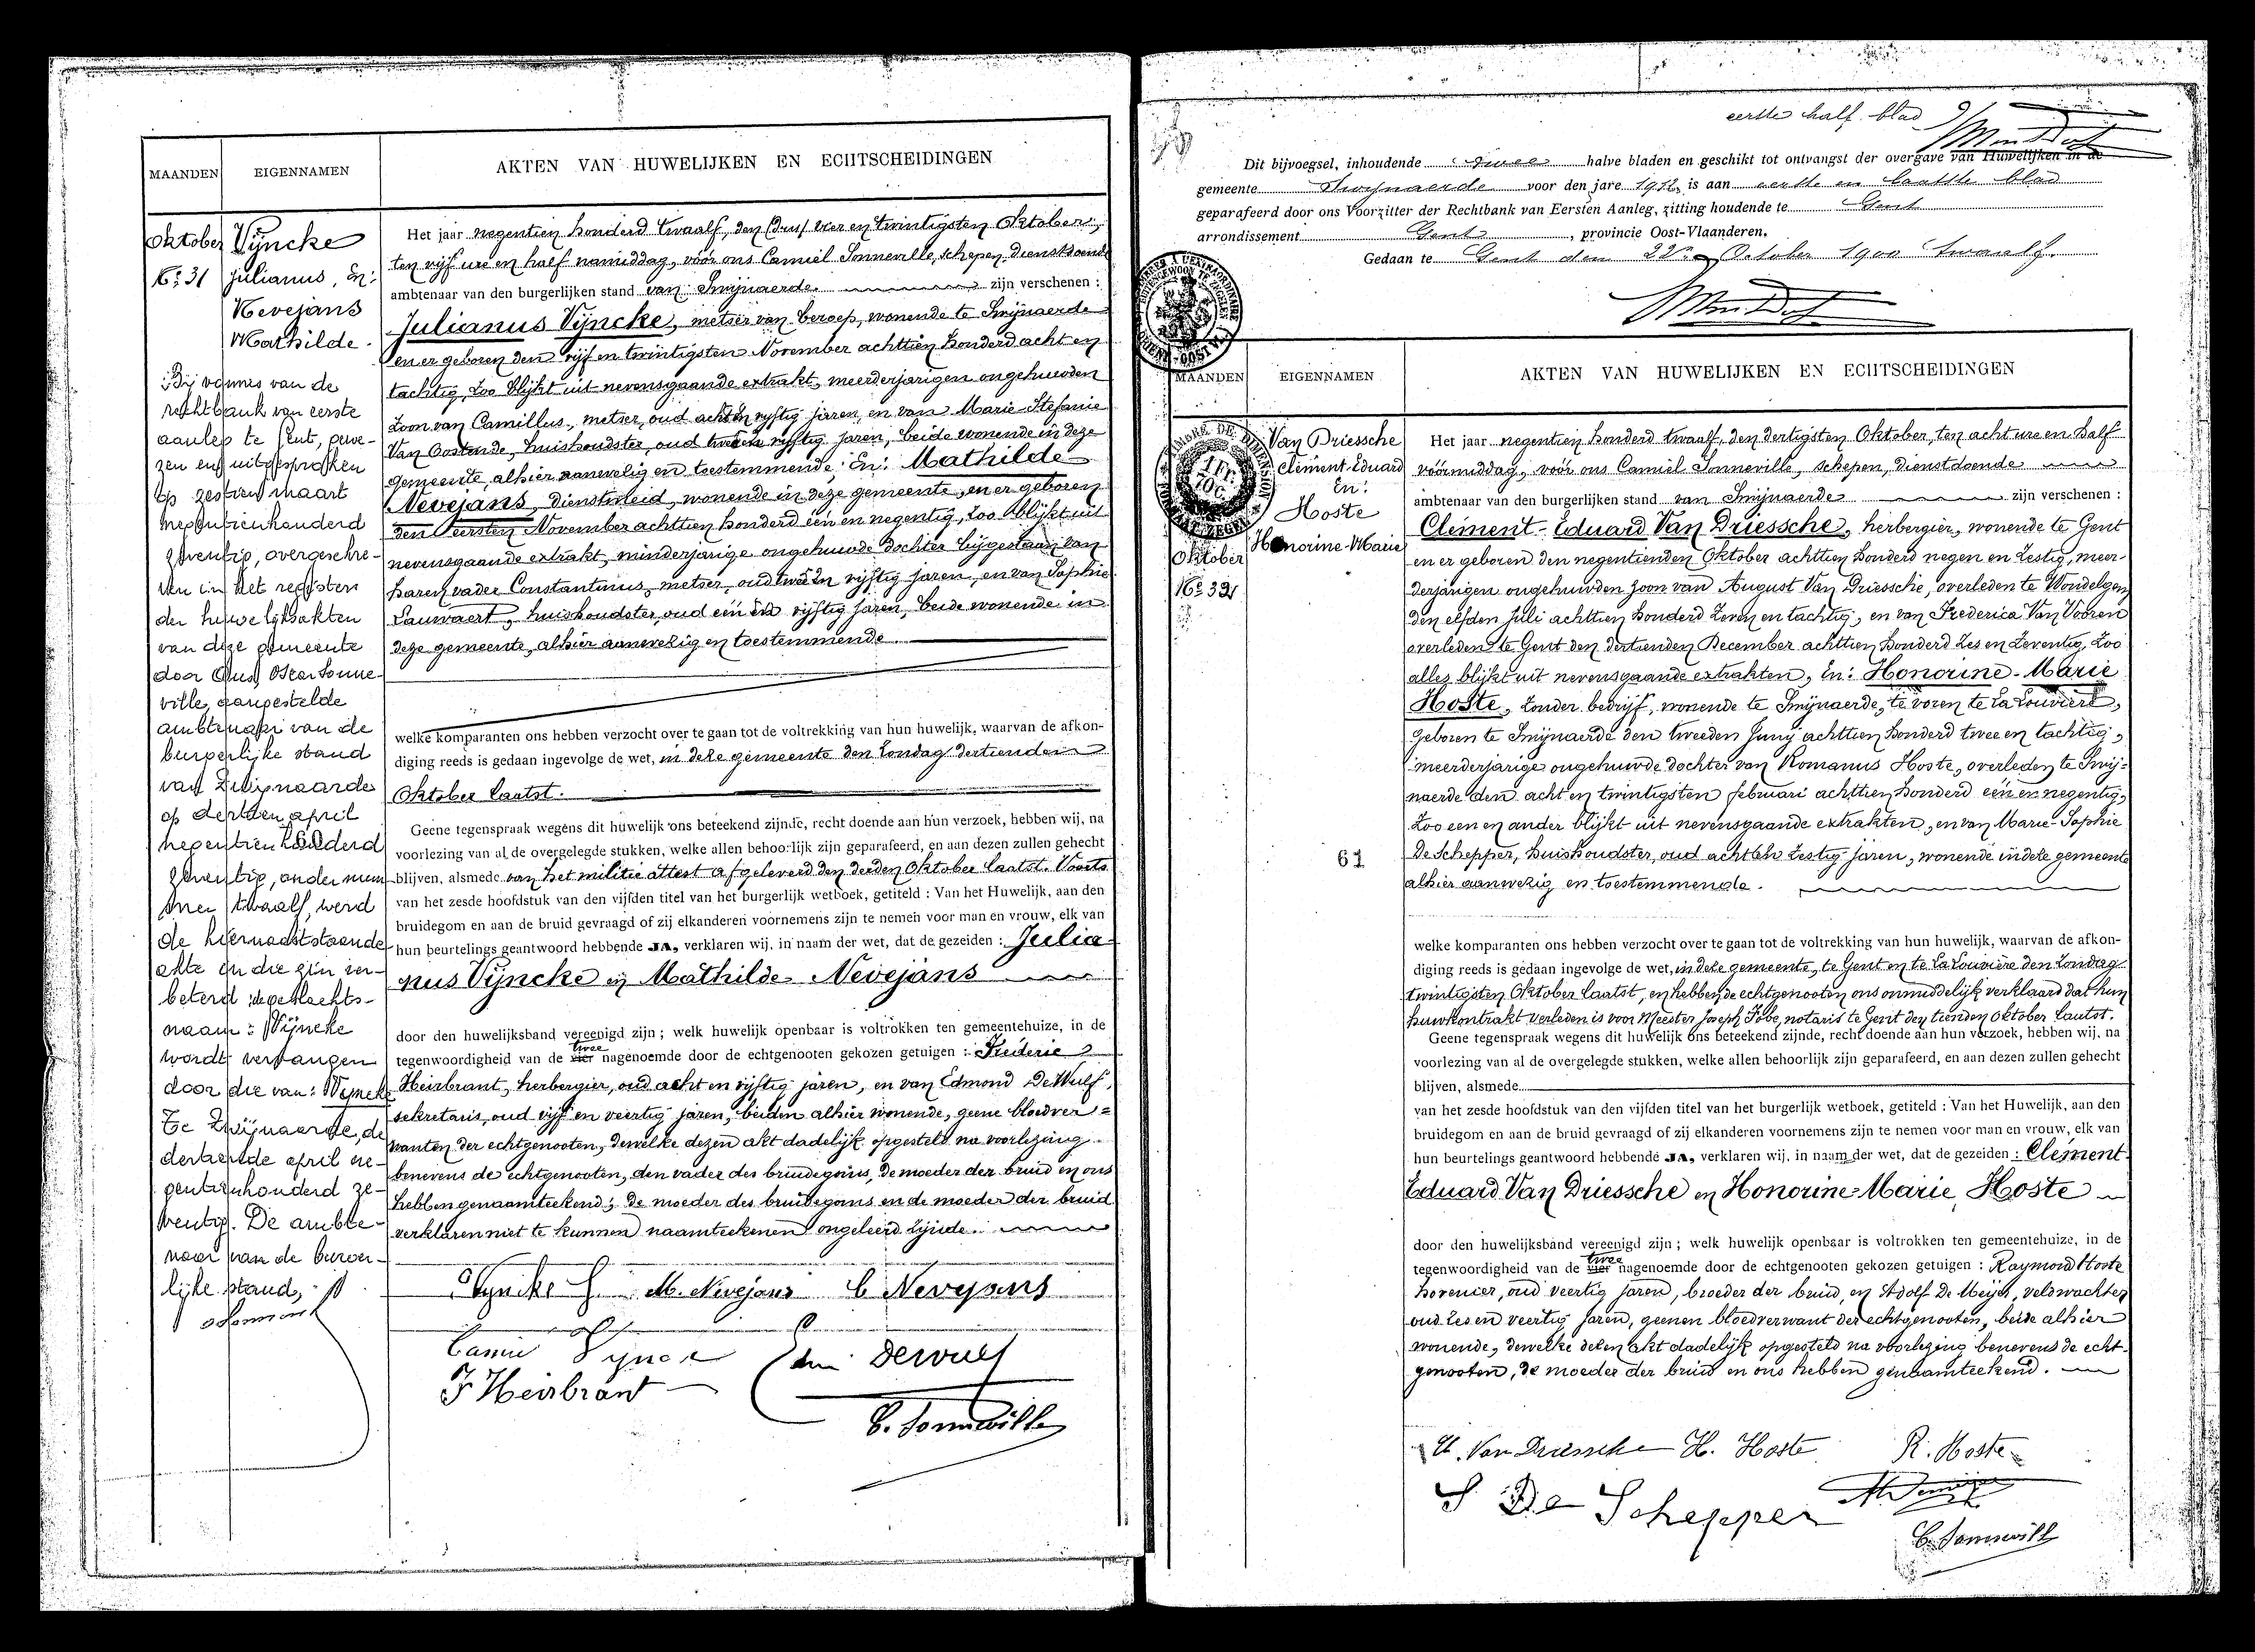 MAANDEN
EIGENNAMEN
AKTEN VAN HUWELIJKEN EN ECHTSCHEIDINGEN
Oktober
No 31
Vijncke
Julianus, En:
Nevejans
Mathilde.
Bij vonnis van de
rechtbank van eerste
aanleg te Gent, gewe-
zen en uitgesproken
op zestien maart
negentienhonderd
zeventig, overgeschre-
ven in het register
der huwelijksakten
van deze gemeente
door Ons, Oscar Sonne-
ville, aangestelde
ambtenaar van de
burgerlijke stand
van Zwijnaarde
op dertien april
negentienhonderd
zeventig, onder num-
mer twaalf, werd
de hiernaaststaande
akte in die zin ver-
beterd: de geslachts-
naam: Vijncke
wordt vervangen
door die van: Wyncke
Te Zwijnaarde, de
dertiende april ne-
gentienhonderd ze-
ventig. De ambte-
naar van de burger-
lijke stand,
Het jaar negentien honderd twaalf, den vier en twintigsten Oktober,
ten vijf ure en half namiddag, vóór ons Camiel Sonneville, schepen, dienstdoende
ambtenaar van den burgerlijken stand van Swijnaerde zijn verschenen :
Julianus Vijncke, metser van beroep, wonende te Swijnaerde
en er geboren den vijf en twintigsten November achttien honderd acht en
tachtig, zoo blijkt uit nevensgaande extrakt, meerderjarigen ongehuwden
zoon van Camillus, metser, oud acht en vijftig jaren, en van Marie-Stefanie
Van Oostende, huishoudster, oud twee en vijftig jaren, beide wonende in deze
gemeente, alhier aanwezig en toestemmende; En: Mathilde
Nevejans, dienstmeid, wonende in deze gemeente, en er geboren
den eersten November achttien honderd één en negentig, zoo blijkt uit
nevensgaande extrakt, minderjarige ongehuwde dochter bijgestaan van
haren vader Constantinus, metser, oud twee en vijftig jaren, en van Sophie
Lauwaert, huishoudster, oud één en vijftig jaren, beide wonende in
deze gemeente, alhier aanwezig en toestemmende.
welke komparanten ons hebben verzocht over te gaan tot de voltrekking van hun huwelijk, waarvan de afkon-
diging reeds is gedaan ingevolge de wet, in deze gemeente den Zondag dertienden
Oktober laatst.
Geene tegenspraak wegens dit huwelijk ons beteekend zijnde, recht doende aan hun verzoek, hebben wij, na
voorlezing van al de overgelegde stukken, welke allen behoorlijk zijn geparafeerd, en aan dezen zullen gehecht
blijven, alsmede van het militie attest afgeleverd den derden Oktober laatst. Voorts
van het zesde hoofdstuk van den vijfden titel van het burgerlijk wetboek, getiteld : Van het Huwelijk, aan den
bruidegom en aan de bruid gevraagd of zij elkanderen voornemens zijn te nemen voor man en vrouw, elk van
hun beurtelings geantwoord hebbende JA, verklaren wij, in naam der wet, dat de gezeiden : Julia-
nus Vijncke en Mathilde Nevejans
door den huwelijksband vereenigd zijn ; welk huwelijk openbaar is voltrokken ten gemeentehuize, in de
tegenwoordigheid van de vier twee nagenoemde door de echtgenooten gekozen getuigen : Frederic
Heirbrant, herbergier, oud acht en vijftig jaren, en van Edmond De Wulf,
sekretaris, oud vijf en veertig jaren, beiden alhier wonende, geene bloedver=
wanten der echtgenooten, dewelke dezen akt dadelijk opgesteld na voorlezing
benevens de echtgenooten, den vader des bruidegoms, de moeder der bruid en ons
hebben genaamteekend; De moeder des bruidegoms en de moeder der bruid
verklaren niet te kunnen naamteekenen ongeleerd zijnde.
Vyncke J. M. Nevejans C Nevejans
Camiel Vyncke Edm. Dewulf
F Heirbrant
C. Sonneville
eerste half blad
Dit bijvoegsel, inhoudende twee halve bladen en geschikt tot ontvangst der overgave van Huwelijken in de
gemeente Swijnaerde voor den jare 1912, is aan eerste en laatste blad
geparafeerd door ons Voorzitter der Rechtbank van Eersten Aanleg, zitting houdende te Gent
arrondissement Gent, provincie Oost-Vlaanderen.
Gedaan te Gent den 22n October 1900 twaalf.
MAANDEN
EIGENNAMEN
AKTEN VAN HUWELIJKEN EN ECHTSCHEIDINGEN
Oktober
No 32
Van Driessche
Clément-Eduard
En:
Hoste
Honorine-Marie
61
Het jaar negentien honderd twaalf, den dertigsten Oktober, ten acht ure en half
voormiddag, vóór ons Camiel Sonneville, schepen, dienstdoende
ambtenaar van den burgerlijken stand van Swijnaerde zijn verschenen :
Clément-Eduard Van Driessche, herbergier, wonende te Gent
en er geboren den negentienden Oktober achttien honderd negen en zestig, meer-
derjarigen ongehuwden zoon van August Van Driessche, overleden te Wondelgem
den elfden Juli achttien honderd zeven en tachtig, en van Frederica Van Vooren
overleden te Gent den dertienden December achttien honderd zes en zeventig, zoo
alles blijkt uit nevensgaande extrakten, En: Honorine-Marie
Hoste, zonder bedrijf, wonende te Swijnaerde, te voren te La Louvière,
geboren te Swijnaerde den tweeden Juny achttien honderd twee en tachtig,
meerderjarige ongehuwde dochter van Romanus Hoste, overleden te Swij-
naerde den acht en twintigsten februari achttien honderd één en negentig,
zoo een en ander blijkt uit nevensgaande extrakten, en van Marie-Sophie
De Schepper, huishoudster, oud acht en zestig jaren, wonende in deze gemeente
alhier aanwezig en toestemmende.
welke komparanten ons hebben verzocht over te gaan tot de voltrekking van hun huwelijk, waarvan de afkon-
diging reeds is gedaan ingevolge de wet, in deze gemeente, te Gent en te La Louvière den Zondag
twintigsten Oktober laatst, en hebben de echtgenooten ons onmiddelijk verklaard dat hun
huwkontrakt verleden is voor Meester Joseph Fobe, notaris te Gent den tienden Oktober laatst.
Geene tegenspraak wegens dit huwelijk ons beteekend zijnde, recht doende aan hun verzoek, hebben wij, na
voorlezing van al de overgelegde stukken, welke allen behoorlijk zijn geparafeerd, en aan dezen zullen gehecht
blijven, alsmede
van het zesde hoofdstuk van den vijfden titel van het burgerlijk wetboek, getiteld : Van het Huwelijk, aan den
bruidegom en aan de bruid gevraagd of zij elkanderen voornemens zijn te nemen voor man en vrouw, elk van
hun beurtelings geantwoord hebbende JA, verklaren wij, in naam der wet, dat de gezeiden : Clément-
Eduard Van Driessche en Honorine-Marie Hoste
door den huwelijksband vereenigd zijn ; welk huwelijk openbaar is voltrokken ten gemeentehuize, in de
tegenwoordigheid van de vier twee nagenoemde door de echtgenooten gekozen getuigen : Raymond Hoste
hovenier, oud veertig jaren, broeder der bruid, en Adolf De Meyer, veldwachter
oud zes en veertig jaren, geenen bloedverwant der echtgenooten, beide alhier
wonende, dewelke dezen akt dadelijk opgesteld na voorlezing benevens de echt-
genooten, de moeder der bruid en ons hebben genaamteekend.
Van Driessche H. Hoste R. Hoste
S De Schepper
C. Sonneville